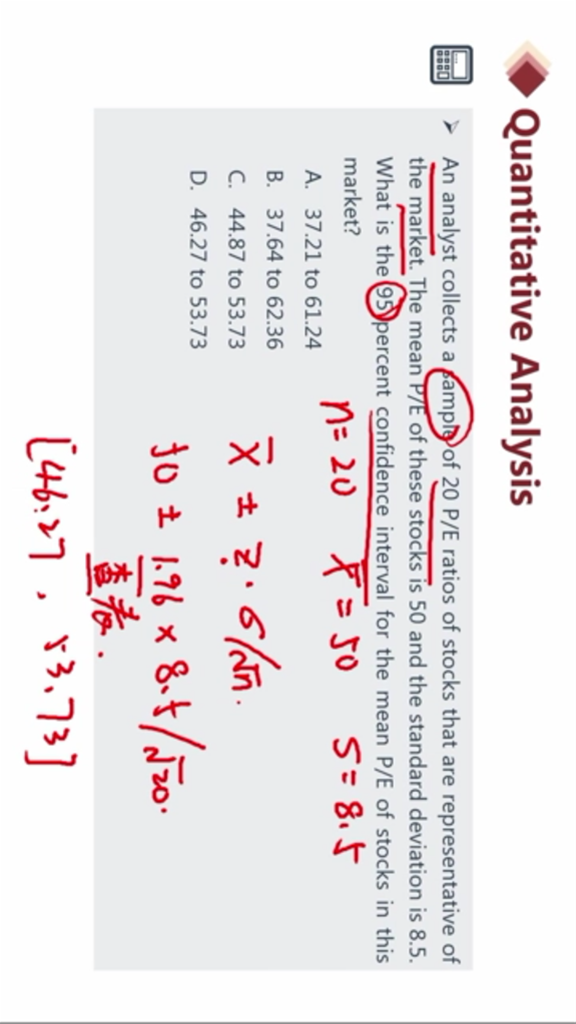 Quantitative Analysis
An analyst collects a sample of 20 P/E ratios of stocks that are representative of
the market. The mean P/E of these stocks is 50 and the standard deviation is 8.5.
What is the 95 percent confidence interval for the mean P/E of stocks in this
market?
A. 37.21 to 61.24
B. 37.64 to 62.36
C. 44.87 to 53.73
D. 46.27 to 53.73
n=20 x̄=50 S=8.5
X̄ ± z·σ/√n.
50 ± 1.96 × 8.5/√20.
查表.
[46.27, 53.73]